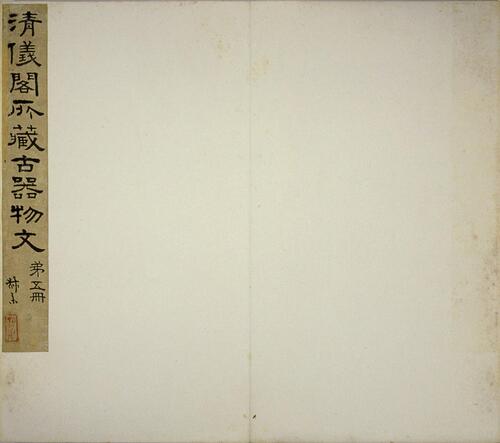 清儀閣所藏古器物文
第五冊